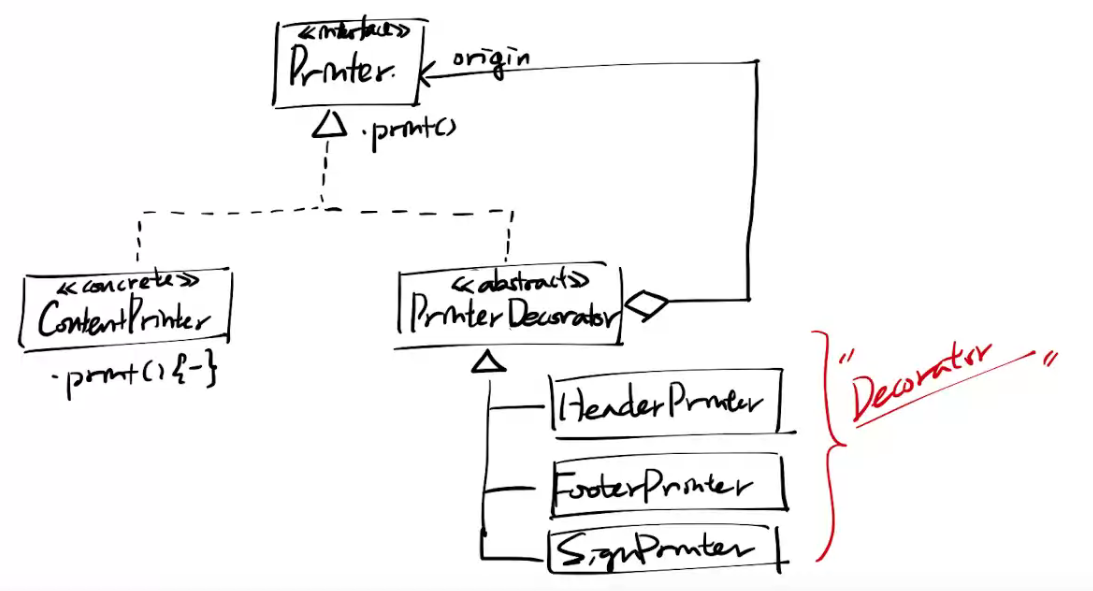 ≪interface≫
Printer
origin
.print()
≪concrete≫
ContentPrinter
.print(){-}
≪abstract≫
PrinterDecorator
HeaderPrinter
FooterPrinter
SignPrinter
"Decorator"